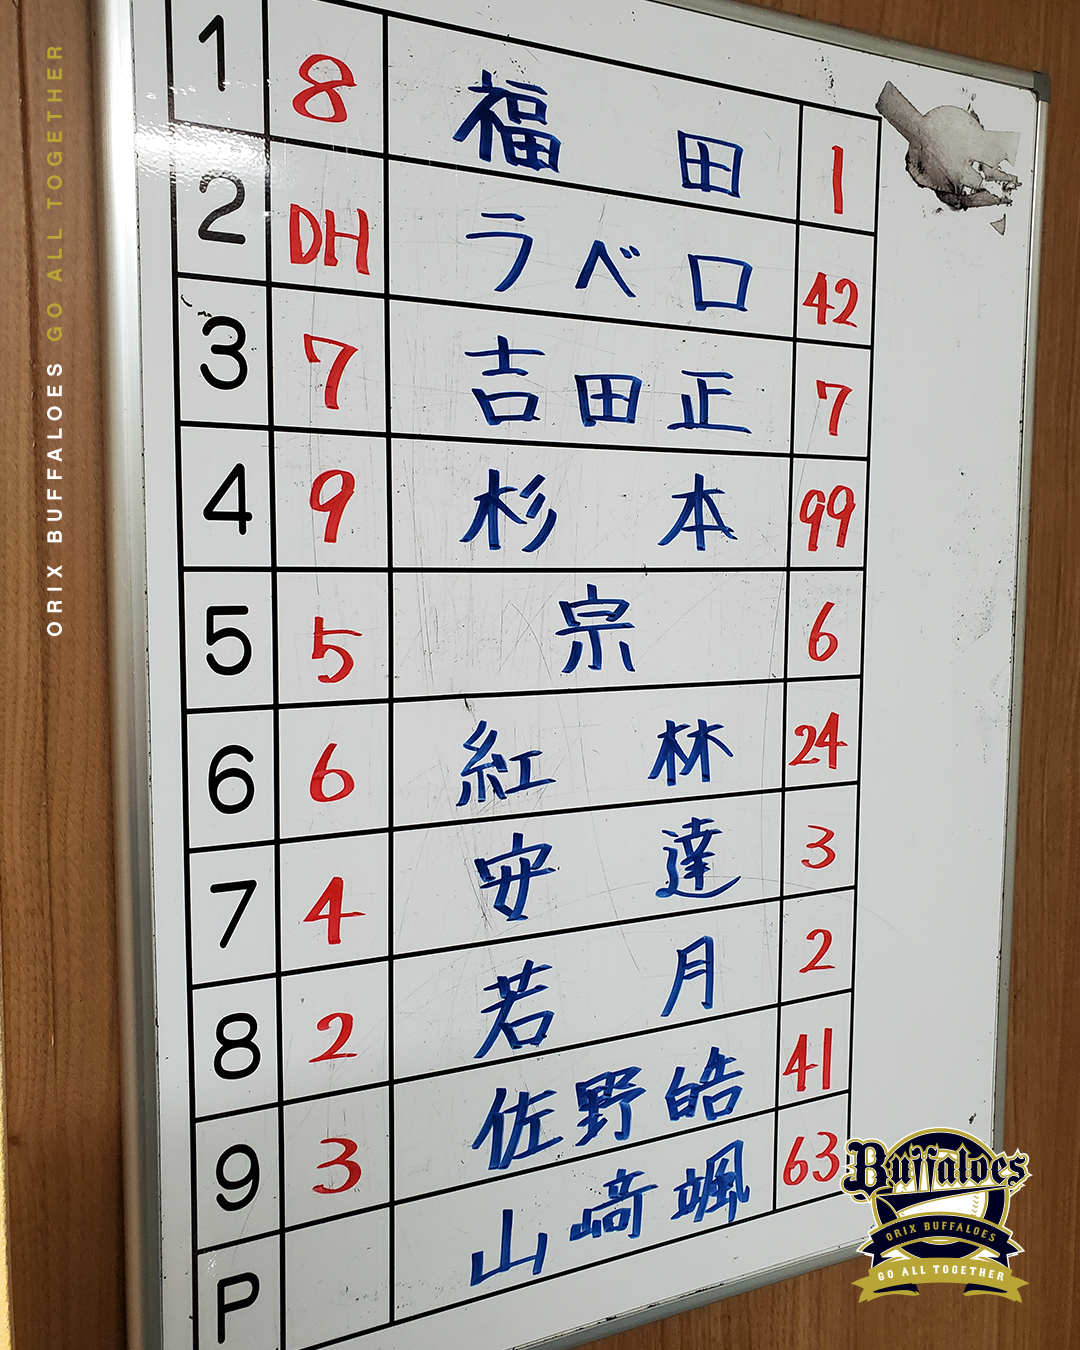 1 8 福田 1
2 DH ラベロ 42
3 7 吉田正 7
4 9 杉本 99
5 5 宗 6
6 6 紅林 24
7 4 安達 3
8 2 若月 2
9 3 佐野皓 41
P 山﨑颯 63
ORIX BUFFALOES GO ALL TOGETHER
Buffaloes
ORIX BUFFALOES
GO ALL TOGETHER